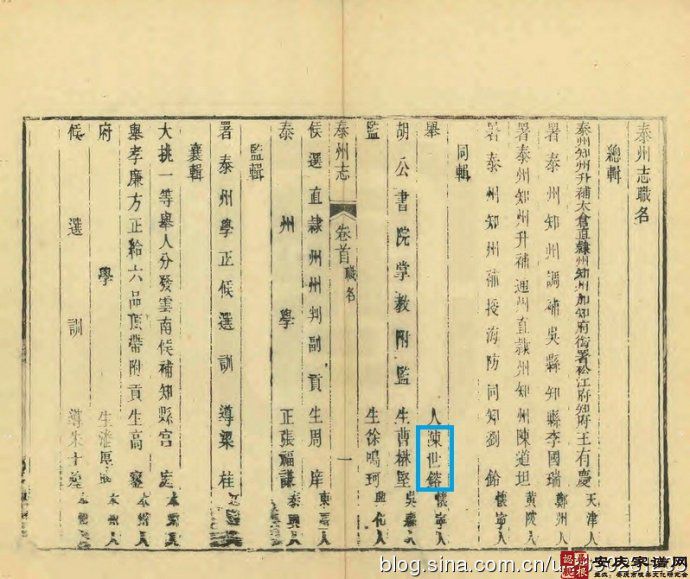 泰州志職名
總輯
泰州知州升補太倉直隸州知州加知府銜署松江府知府王有慶 天津人
署泰州知州調補吳縣知縣李國瑞 鄭州人
署泰州知州升補通州直隸州知州陳道坦 黃陂人
署泰州知州補授海防同知劉 懷寧人
同輯
舉人陳世鎔 懷寧人
胡公書院掌教附監生曹楙堅 吳縣人
監生徐鳴珂 興化人
泰州志 卷首 職名 一
候選直隸州州判副貢生周庠 東 人
泰州學正張福謙 泰興人
監輯
署泰州學正候選訓導梁桂
襄輯
大挑一等舉人分發雲南候補知縣宮 本州人
舉孝廉方正給六品頂帶附貢生高 本州人
府學生 本州人
候選訓導朱
blog.sina.com.cn/u
安庆家谱网